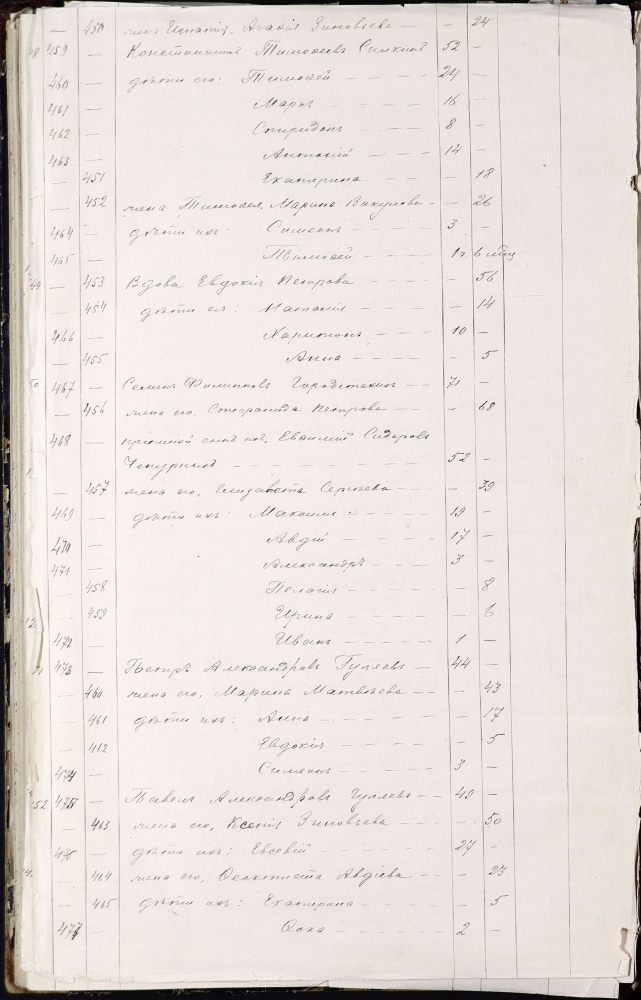 — 450 жена Игнатія, Агафія Зиновьева — 24
48 459 — Константинъ Тимофеевъ 52 —
460 — дѣти его: Тимофей 24 —
461 — Маркъ 16 —
462 — Спиридонъ 8 —
463 — Антоній 14 —
— 451 Екатерина — 18
— 452 жена Тимофея, Марина Викулова — 26
464 — дѣти ихъ: Симеонъ 3 —
465 — Тимофей 1 г. 6 мѣс
49 — 453 Вдова Евдокія Петрова — 56
— 454 дѣти ея: Наталія — 14
466 — Харитонъ 10 —
— 455 Анна — 5
50 467 — Семенъ Филипповъ 71 —
— 456 жена его, Стефанида Петрова — 68
468 — пріемный сынъ ихъ, Евфимій Сидоровъ
Чепурныхъ 52 —
— 457 жена его, Елизавета Сергѣева — 39
469 — дѣти ихъ: Максимъ 19 —
470 — Авдій 17 —
471 — Александръ 3 —
— 458 Пелагія — 8
— 459 Ирина — 6
472 — Иванъ 1 —
51 473 — Петръ Александровъ Гуляевъ 44 —
— 460 жена его, Марина Матвѣева — 43
— 461 дѣти ихъ: Анна — 17
— 462 Евдокія — 5
474 — Симеонъ 3 —
52 475 — Павелъ Александровъ Гуляевъ 49 —
— 463 жена его, Ксенія Зиновьева — 50
476 — дѣти ихъ: Евсевій 27 —
— 464 жена его, Феоктиста Авдіева — 23
— 465 дѣти ихъ: Екатерина — 5
477 — Фока 2 —